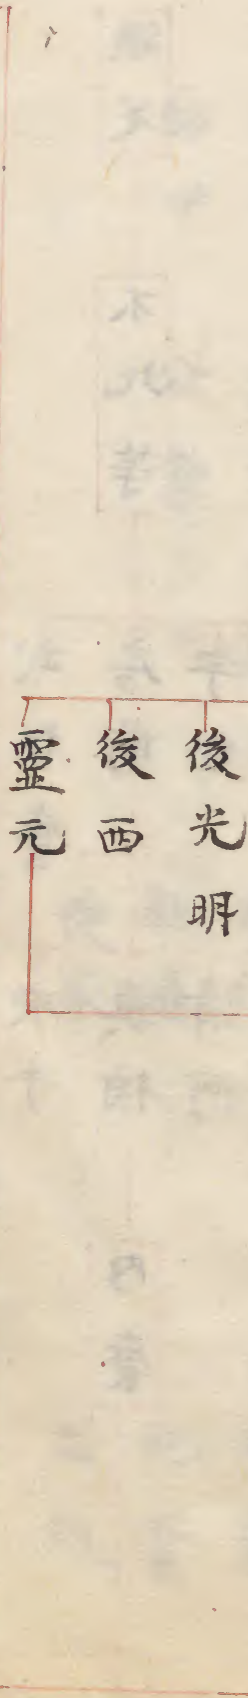 後光明
後西
靈元